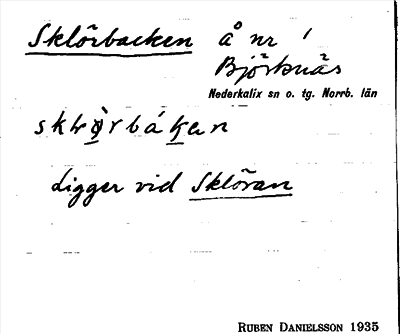 Sklörbacken å nr 1
Björknäs
Nederkalix sn o. tg. Norrb. län
Ligger vid Sklöran
RUBEN DANIELSSON 1935